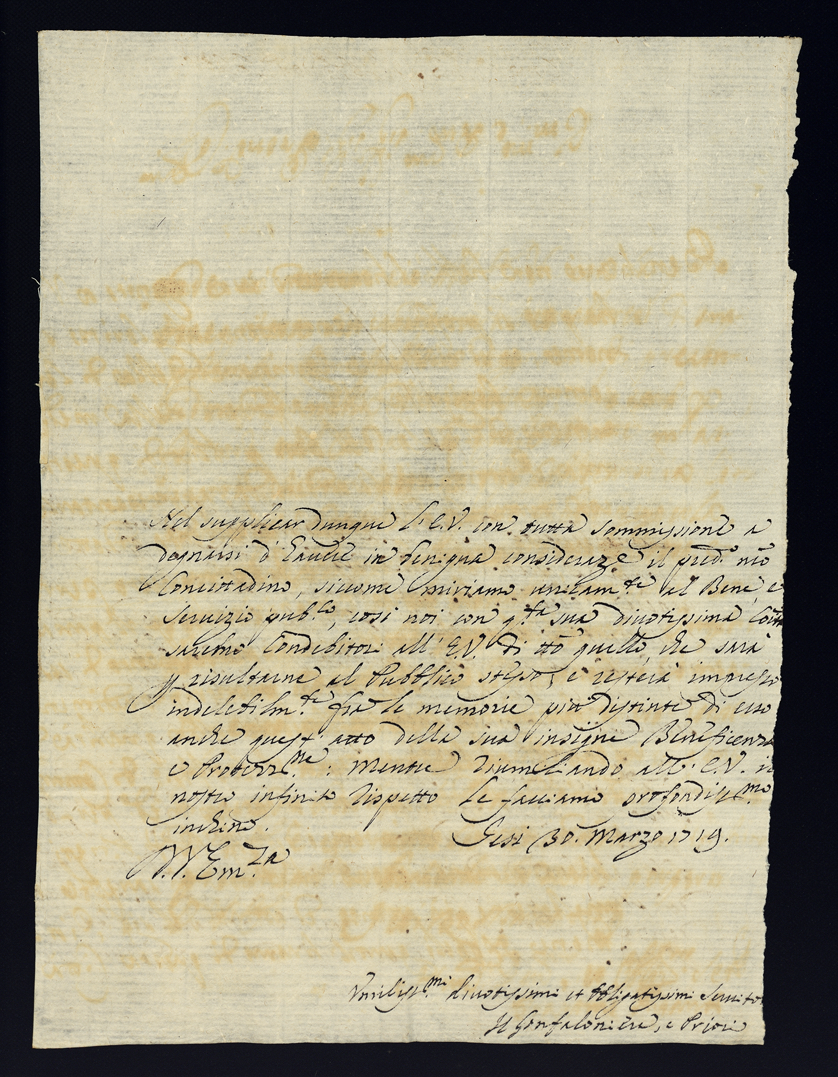 Nel supplicar dunque l'E.V. con tutta sommissione a
degnarsi d'havere in benigna consideraz.e il pred.o nr̃o
Concittadino, siccome miriamo unitam.te al Bene, e
servizio pub.co, così noi con q.ta sua divotissima
saremo Condebitori all'E.V. di tt̃o quello, che sarà
p risultarne al Pubblico stesso, e resterà impresso
indelebilm.te fra le memorie più distinte di esso
anche quest'atto della sua insigne Beneficenza
e Protez.ne: Mentre riumiliando all'E.V. il
nostro infinito rispetto le facciamo profondiss.mo
inchino. Jesi 30. Marzo 1719.
D. V. Em.za
Umiliss.mi divotissimi et obbligatissimi Servitori
Il Gonfaloniere, e Priori